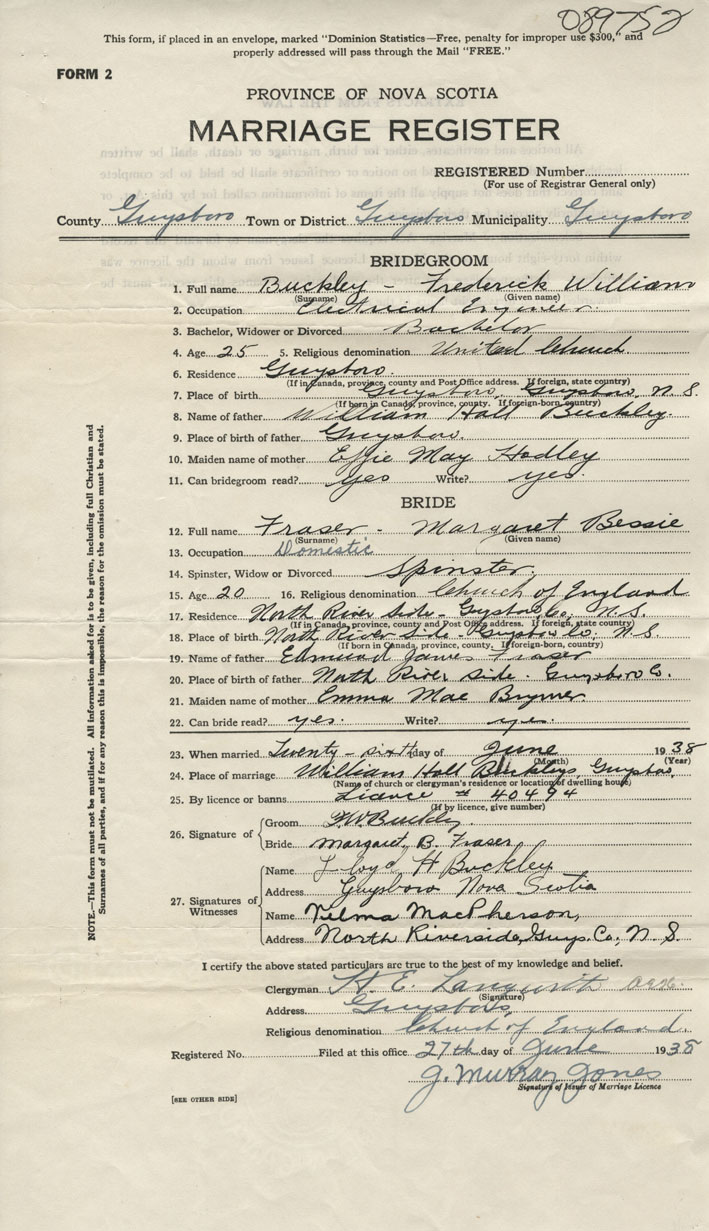 089752
This form, if placed in an envelope, marked "Dominion Statistics—Free, penalty for improper use $300," and
properly addressed will pass through the Mail "FREE."
FORM 2
PROVINCE OF NOVA SCOTIA
MARRIAGE REGISTER
REGISTERED Number
(For use of Registrar General only)
County Guysboro Town or District Guysboro Municipality Guysboro
BRIDEGROOM
1. Full name Buckley - Frederick William
(Surname) (Given name)
2. Occupation Electrical Engineer.
3. Bachelor, Widower or Divorced Bachelor
4. Age 25 5. Religious denomination United Church
6. Residence Guysboro.
(If in Canada, province, county and Post Office address. If foreign, state country)
7. Place of birth Guysboro, Guysboro, N.S.
(If born in Canada, province, county. If foreign-born, country)
8. Name of father William Hall Buckley
9. Place of birth of father Guysboro.
10. Maiden name of mother Effie May Hadley
11. Can bridegroom read? yes Write? yes.
BRIDE
12. Full name Fraser - Margaret Bessie
(Surname) (Given name)
13. Occupation Domestic
14. Spinster, Widow or Divorced Spinster.
15. Age 20 16. Religious denomination Church of England
17. Residence North River Side - Guysboro Co, N.S.
(If in Canada, province, county and Post Office address. If foreign, state country)
18. Place of birth North River Side - Guysboro Co, N.S.
(If born in Canada, province, county. If foreign-born, country)
19. Name of father Edmund James Fraser
20. Place of birth of father North River Side - Guysboro Co.
21. Maiden name of mother Emma Mae Brymer.
22. Can bride read? yes. Write? yes.
23. When married Twenty-sixth day of June 1938
(Month) (Year)
24. Place of marriage William Hall Buckleys, Guysboro,
(Name of church or clergyman's residence or location of dwelling house)
25. By licence or banns 40494
(If by licence, give number)
26. Signature of
Groom F.W. Buckley.
Bride Margaret B. Fraser
27. Signatures of Witnesses
Name Lloyd H Buckley
Address Guysboro Nova Scotia
Name Velma MacPherson,
Address North Riverside, Guys. Co., N.S.
I certify the above stated particulars are true to the best of my knowledge and belief.
Clergyman H. E.
(Signature)
Address Guysboro,
Religious denomination Church of England.
Registered No. Filed at this office 27th day of June 1938
J. Murray Jones
Signature of Issuer of Marriage Licence
[SEE OTHER SIDE]
NOTE.—This form must not be mutilated. All information asked for is to be given, including full Christian and
Surnames of all parties, and if for any reason this is impossible, the reason for the omission must be stated.